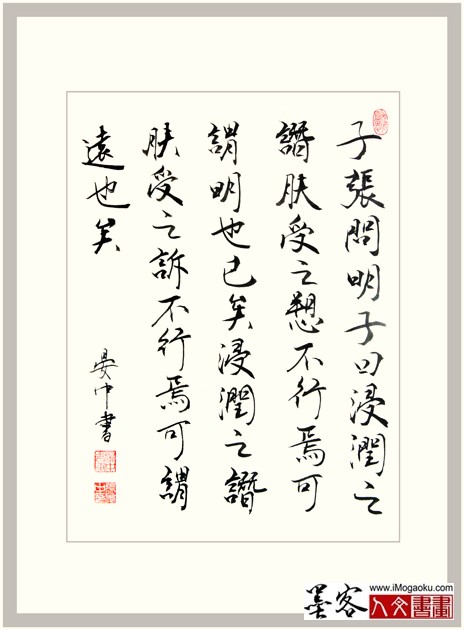 子張問明子曰浸潤之
譖肤受之愬不行焉可
謂明也已矣浸潤之譖
肤受之訴不行焉可謂
遠也矣
晏中書
墨客
www.iMogaoku.com
人文書畫